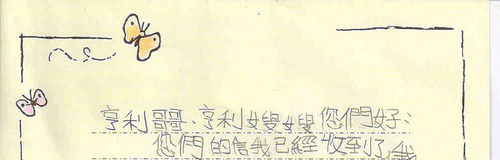 亨利哥哥、亨利嫂嫂您們好：
您們的信我已經收到了我